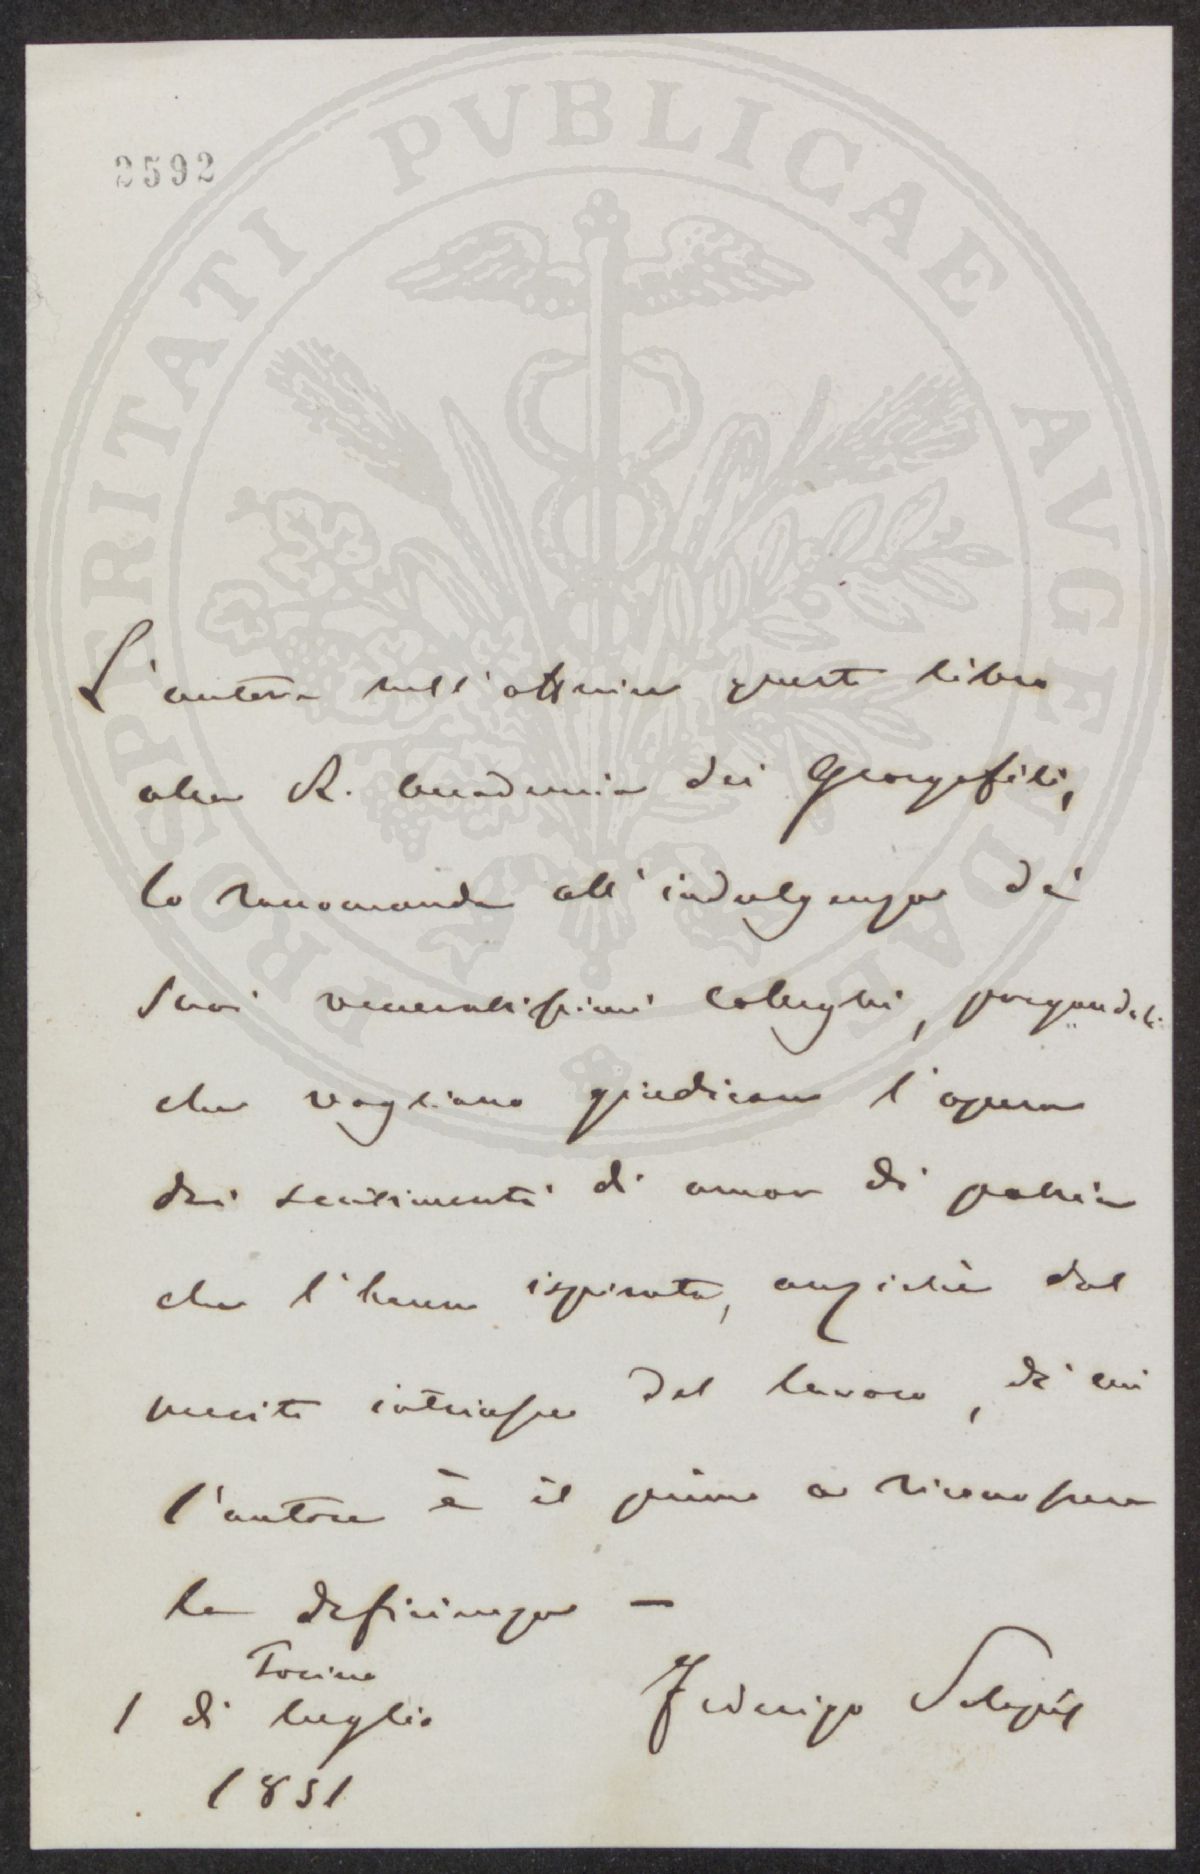 2592
PROSPERITATI PVBLICAE AVGENDAE
L'autore nell'offrire questo libro
alla R. Accademia dei Georgofili,
lo raccomanda all'indulgenza de'
suoi veneratissimi colleghi, pregandoli
che vogliano giudicare l'opera
dai sentimenti di amor di patria
che l'hanno ispirata, anzichè dal
merito intrinseco del lavoro, di cui
l'autore è il primo a riconoscere
la deficienza —
Torino
1 di luglio
1851
Federigo